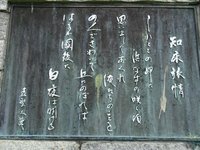 知床旅情
しれとこの岬に
はまなすの咲く頃
思い出しておくれ
俺たちのことを
のんでさわいで
丘にのぼれば
はるか国後に
白夜は明ける